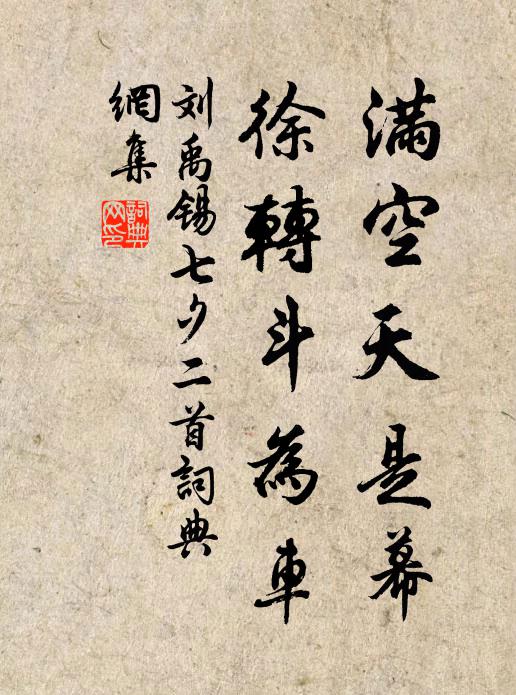 滿空天是幕
徐轉斗為車
刘禹锡七夕二首詞典
網集
詞典
网印